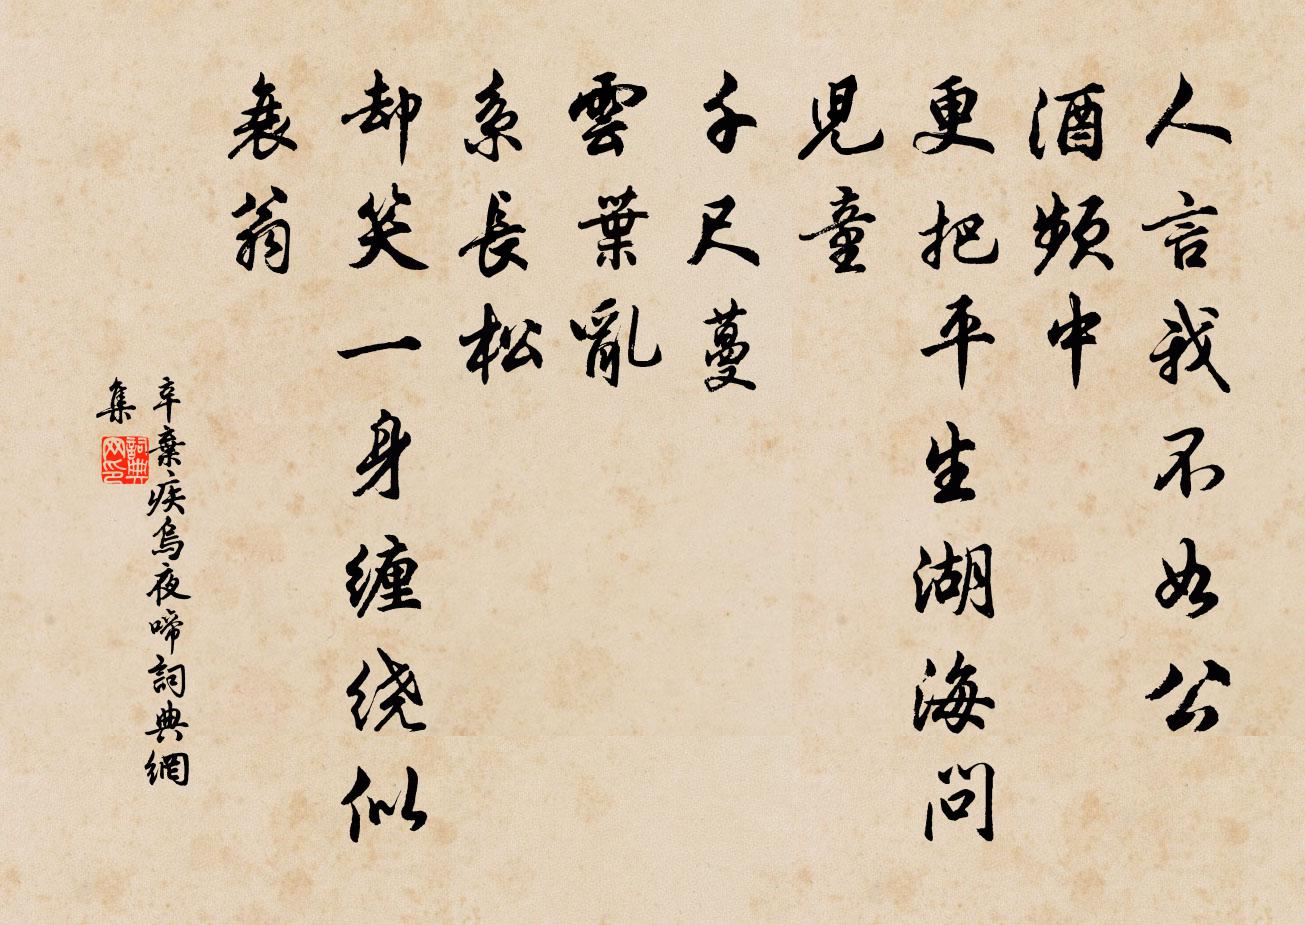 人言我不如公
酒頻中
更把平生湖海問
児童
千尺蔓
雲葉亂
系長松
却笑一身缠绕似
衰翁
辛棄疾烏夜啼詞典網
集
詞典
网印